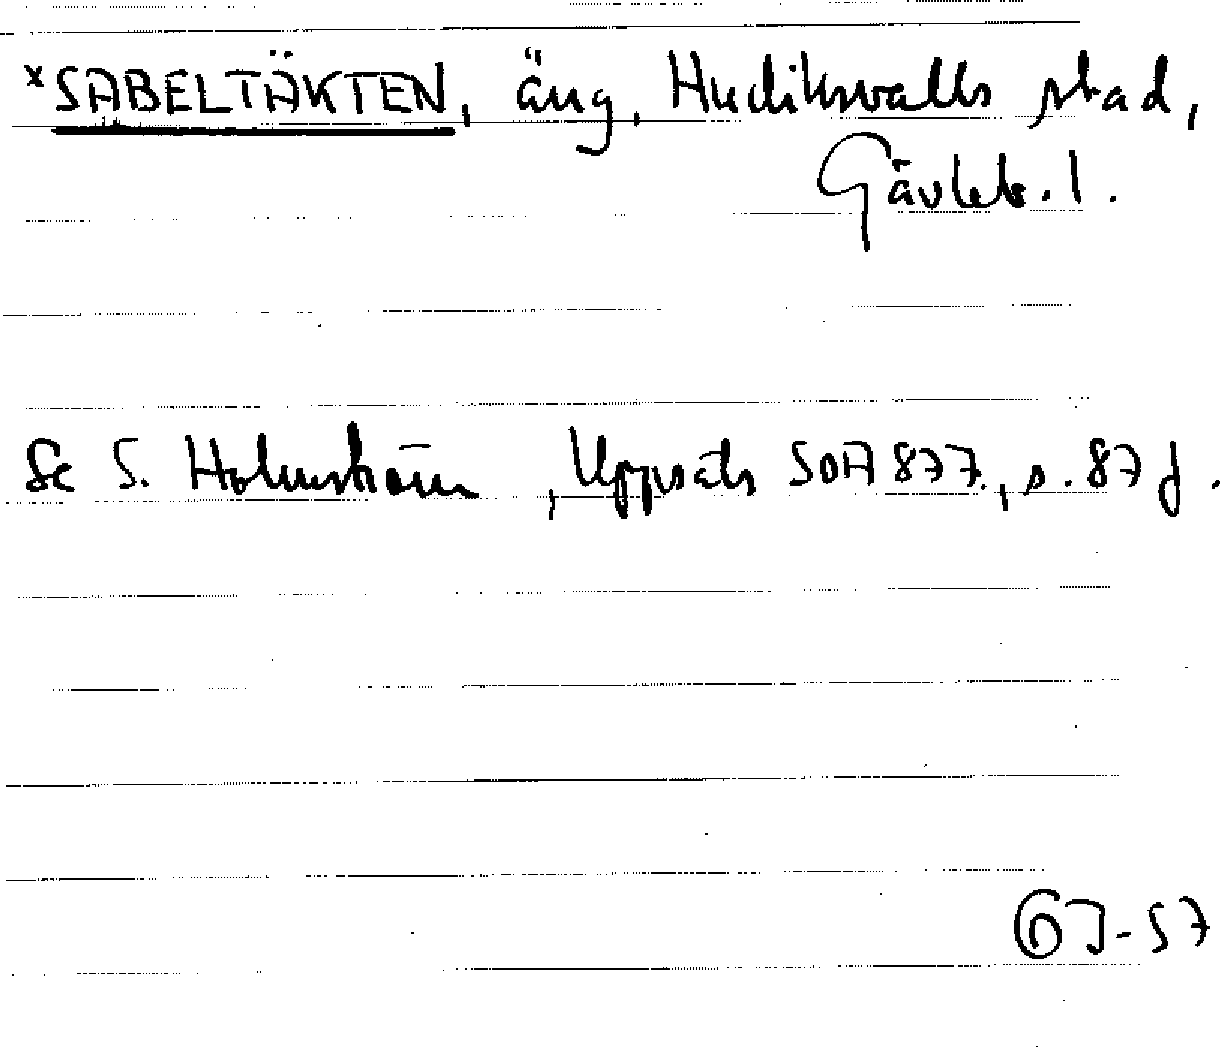 *SABELTÄKTEN, äng, Hudiksvalls stad,
Gävleb. l.
Se S. Holmström, Uppsats SOA 877, s. 87 f.
GJ-57